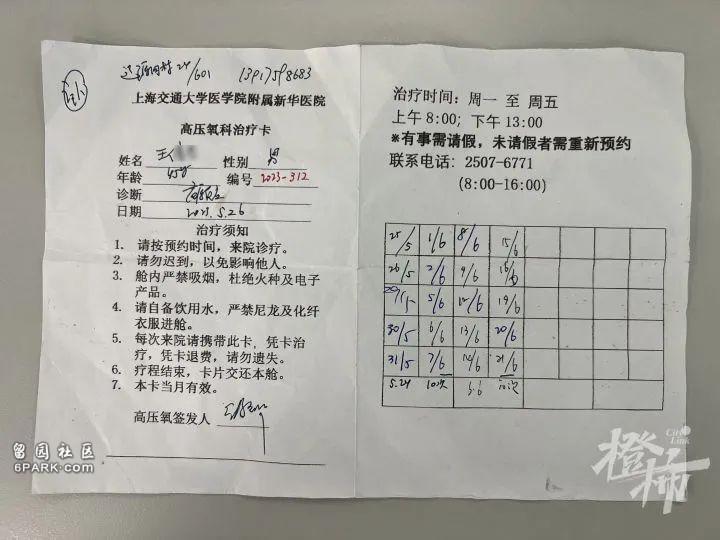 24/601 13917598683
上海交通大学医学院附属新华医院
高压氧科治疗卡
姓名 王 性别 男
年龄 45岁 编号 2023-312
诊断
日期 2023.5.26
治疗须知
1. 请按预约时间，来院诊疗。
2. 请勿迟到，以免影响他人。
3. 舱内严禁吸烟，杜绝火种及电子
产品。
4. 请自备饮用水，严禁尼龙及化纤
衣服进舱。
5. 每次来院请携带此卡，凭卡治
疗，凭卡退费，请勿遗失。
6. 疗程结束，卡片交还本舱。
7. 本卡当月有效。
高压氧签发人
治疗时间：周一 至 周五
上午 8:00；下午 13:00
*有事需请假，未请假者需重新预约
联系电话：2507-6771
(8:00-16:00)
25/5 1/6 8/6 15/6
26/5 2/6 9/6 16/6
29/5 5/6 12/6 19/6
30/5 6/6 13/6 20/6
31/5 7/6 14/6 21/6
10次
留园社区
6PARK.COM
City Link
橙柿